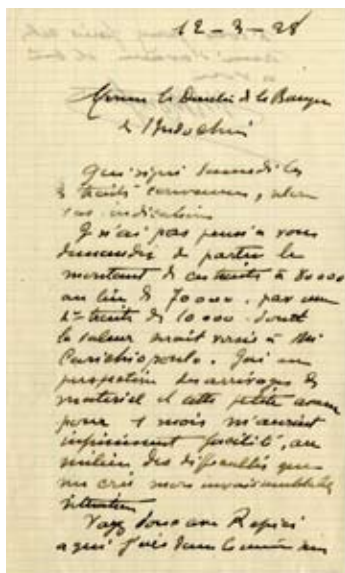 12-3-28
Monsieur le Directeur de la Banque
de l'Indochine
J'ai signé samedi les
traités convenues, selon
vos indications
Je n'ai pas pensé à vous
demander de porter le
montant de ces traites à 80000
au lieu de 70000, par une
traite de 10000 dont
la valeur serait versée à Mr
J'ai en
perspective des arrivages de
matériel et cette petite avance
pour 1 mois m'aurait
infiniment facilité, au
milieu des difficultés que
me crée mon invraisemblable
situation
Voyez donc avec